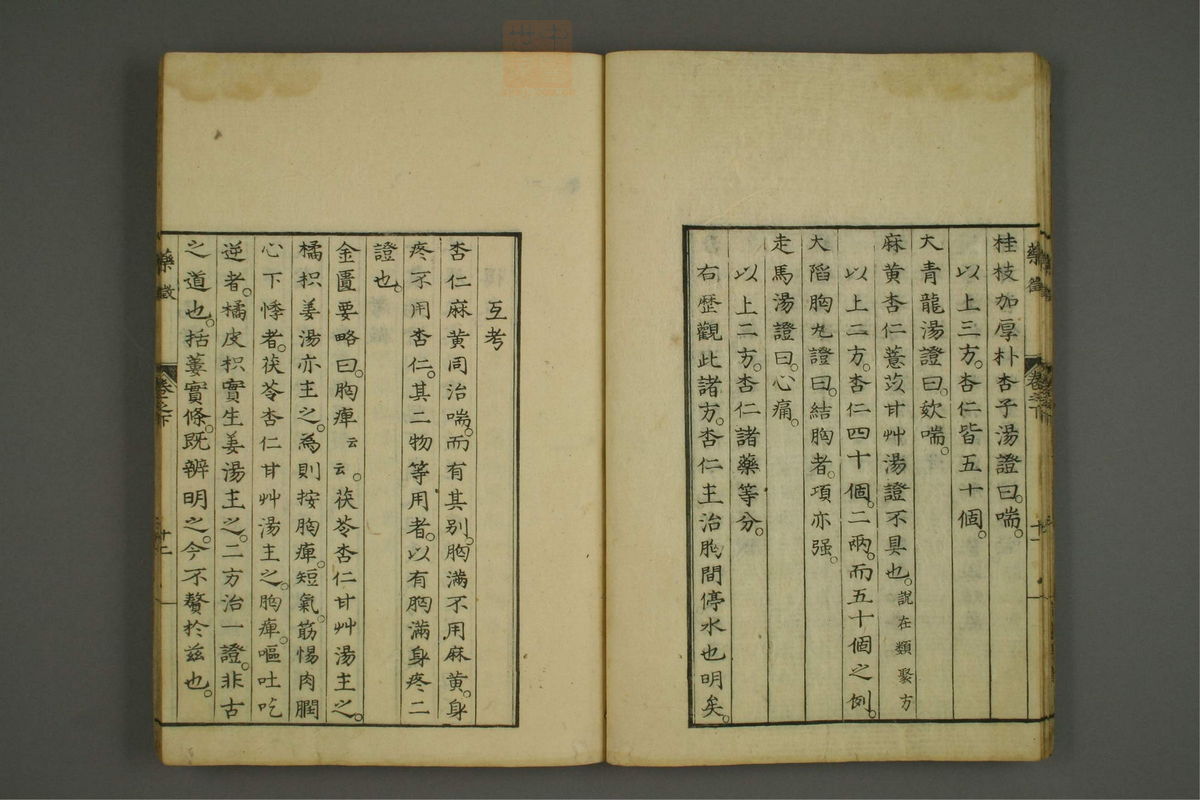 桂枝加厚朴杏子湯證曰。喘。
以上三方。杏仁皆五十個。
大青龍湯證曰。欬喘。
麻黄杏仁薏苡甘艸湯證不具也。說在類聚方
以上二方。杏仁四十個。二兩。而五十個之例。
大陷胸丸證曰。結胸者。項亦强。
走馬湯證曰。心痛。
以上二方。杏仁諸藥等分。
右歷觀此諸方。杏仁主治胸間停水也明矣。
互考
杏仁麻黄同治喘。而有其別。胸滿不用麻黄。身
疼不用杏仁。其二物等用者。以有胸滿身疼二
證也。
金匱要略曰。胸痺云云。茯苓杏仁甘艸湯主之。
橘枳姜湯亦主之。爲則按胸痺。短氣。筋惕肉瞤
心下悸者。茯苓杏仁甘艸湯主之。胸痺。嘔吐吃
逆者。橘皮枳實生姜湯主之。二方治一證。非古
之道也。括蔞實條。既辨明之。今不贅於兹也。
藥徵
卷之下
十二